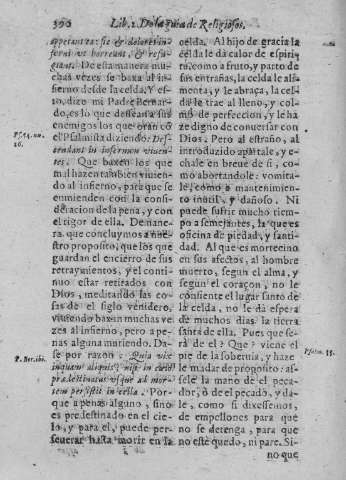 390 Lib. 1. De la Jura de Religiosos.
appetant ea sic & dolores in-
ferni vt horreant, & refu-
giant. De esta manera mu-
chas vezes se baxa al in-
fierno desde la Celda. Y es-
to, dize mi Padre Bernar-
do, es lo que desean a sus
enemigos los que oran co
el Psalmista diziendo: Des-
cendant in infernum viuen-
tes. Que baxen los que
mal hazen tambien viuien-
do al infierno, para que se
enmienden con la consi-
deracion de la pena, y con
el rigor de ella. De mane-
ra que concluymos a nue-
stro proposito, que los que
guardan el encierro de sus
retraymientos, y el conti-
nuo estar retirados con
Dios, meditando las co-
sas de el siglo venidero,
viuiendo baxan muchas ve-
zes al infierno, pero a pe-
nas alguna muriendo. Da-
se por razon: Quia vix
inquam aliquis, nisi in cœlo
prædestinatus vsque ad mor-
tem persistit in cella. Por-
que a penas alguno, sino
es predestinado en el cie-
lo, y para el, puede per-
seuerar hasta morir en la
Psal. 54. nu.
16.
P. Ber. ibi.
celda. Al hijo de gracia la
celda le da calor de espiri-
tu, como a fruto, y parto de
sus entrañas, la celda le ali-
menta, y le abraça, la cel-
da le trae al lleno, y col-
mo de perfeccion, y le ha-
ze digno de conuersar con
Dios. Pero al estraño, al
introduzido apartale, y e-
chale en breue de si, co-
mo abortandole: vomita-
le, como a mantenimien-
to inutil, y dañoso. Ni
puede sufrir mucho tiem-
po a semejantes, la que es
oficina de piedad, y santi-
dad. Al que es mortecino
en sus afectos, al hombre
muerto, segun el alma, y
segun el coraçon, no le
consiente el lugar santo de
la celda, no le da espera
de muchos dias la tierra
santa de ella. Pues que se-
rà de el? Que? viene el
pie de la soberuia, y haze
le mudar de proposito: as-
sele la mano de el peca-
dor, ò de el pecado, y da-
le, como si dixessemos,
de empellones para que
no se detenga, para que
no esté quedo, ni pare. Si-
no que
Psalm. 35.